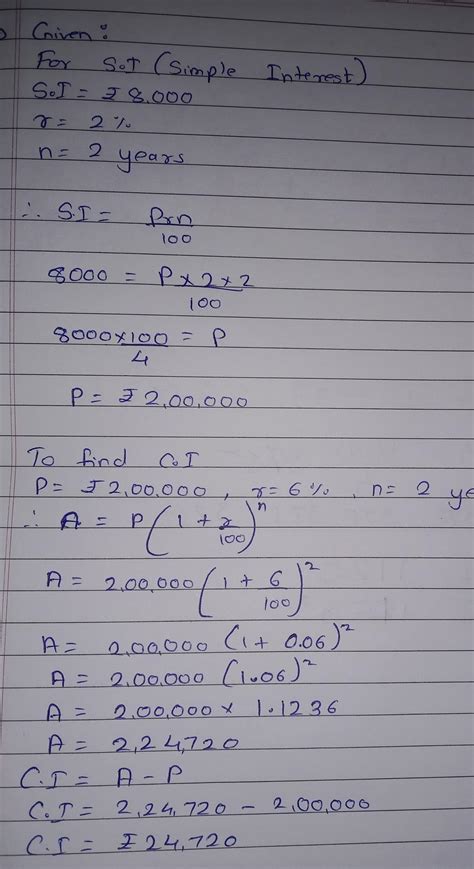 Given :
For S.I (Simple Interest)
S.I = ₹ 8,000
r = 2 %
n = 2 years
∴ S.I = Prn/100
8000 = P × 2 × 2/100
8000×100/4 = P
P = ₹ 2,00,000
To find C.I
P = ₹ 2,00,000 , r = 6 % , n = 2 ye
∴ A = P(1 + r/100)^n
A = 2,00,000 (1 + 6/100)^2
A = 2,00,000 (1 + 0.06)^2
A = 2,00,000 (1.06)^2
A = 2,00,000 × 1.1236
A = 2,24,720
C.I = A - P
C.I = 2,24,720 - 2,00,000
C.I = ₹ 24,720